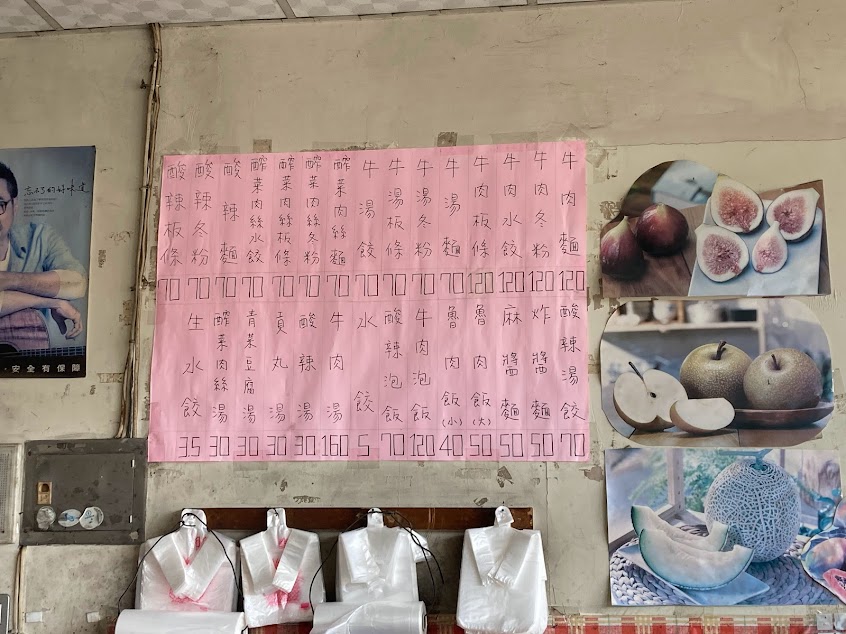 牛肉麵 120
牛肉冬粉 120
牛肉水餃 120
牛肉板條 120
牛湯麵 70
牛湯冬粉 70
牛湯板條 70
牛湯餃 70
酢菜肉絲麵 70
酢菜肉絲冬粉 70
酢菜肉絲板條 70
酢菜肉絲水餃 70
酸辣麵 70
酸辣冬粉 70
酸辣板條 70
酸辣湯餃 70
炸醬麵 50
麻醬麵 50
魯肉飯(大) 50
魯肉飯(小) 40
牛肉泡飯 120
酸辣泡飯 70
水餃 5
牛肉湯 160
酸辣湯 30
貢丸湯 30
青菜豆腐湯 30
酢菜肉絲湯 30
生水餃 35
忘不了的好味道
安全有保障